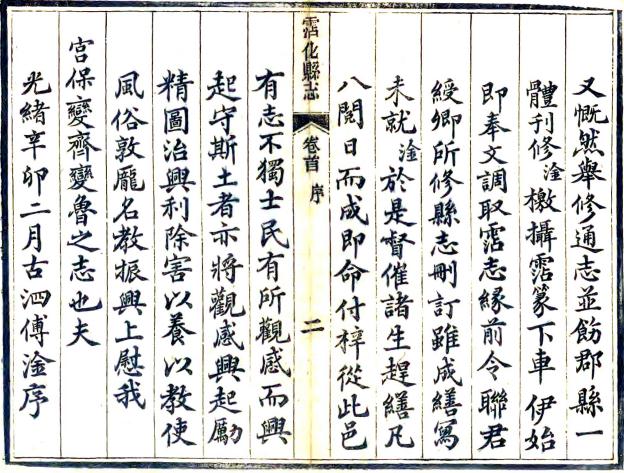 又慨然舉修通志並飭郡縣一
體刊修淦檄攝霑篆下車伊始
即奉文調取霑志緣前令聯君
綬卿所修縣志刪訂雖成繕寫
未就淦於是督催諸生趕繕凡
八閱日而成即命付梓從此邑
霑化縣志 卷首 序 二
有志不獨士民有所觀感而興
起守斯土者亦將觀感興起勵
精圖治興利除害以養以教使
風俗敦龐名教振興上慰我
宮保變齊變魯之志也夫
光緒辛卯二月古泗傅淦序